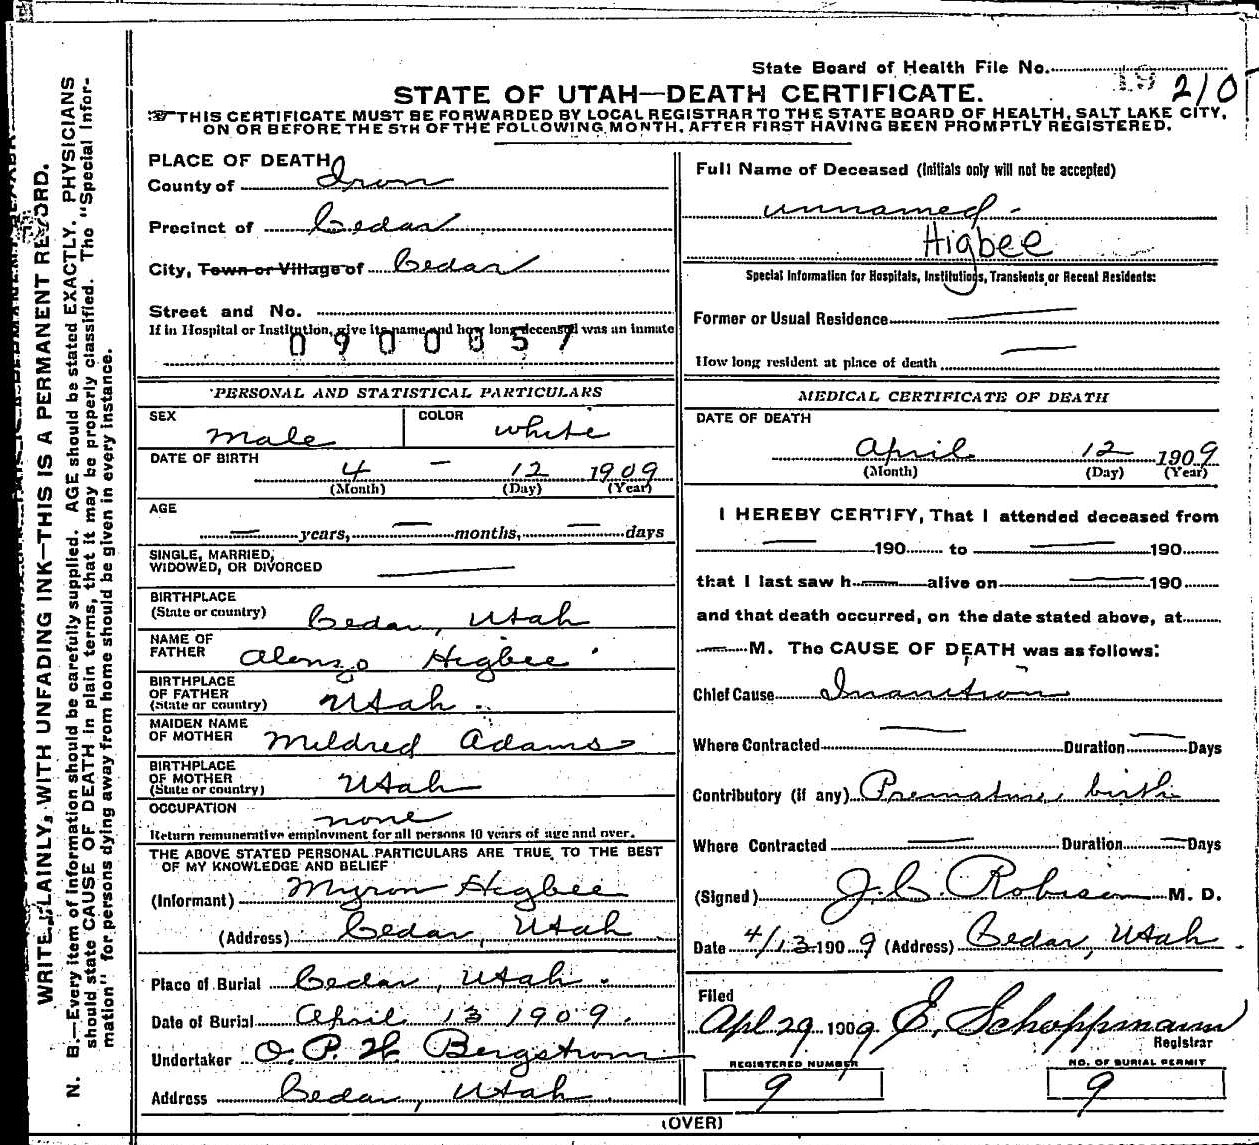 State Board of Health File No. 19 210
STATE OF UTAH—DEATH CERTIFICATE.
THIS CERTIFICATE MUST BE FORWARDED BY LOCAL REGISTRAR TO THE STATE BOARD OF HEALTH, SALT LAKE CITY,
ON OR BEFORE THE 5TH OF THE FOLLOWING MONTH, AFTER FIRST HAVING BEEN PROMPTLY REGISTERED.
PLACE OF DEATH
County of Iron
Precinct of Cedar
City, Town or Village of Cedar
Street and No.
If in Hospital or Institution, give its name and how long deceased was an inmate
0900057
Full Name of Deceased (Initials only will not be accepted)
unnamed -
Higbee
Special Information for Hospitals, Institutions, Transients, or Recent Residents:
Former or Usual Residence —
How long resident at place of death —
PERSONAL AND STATISTICAL PARTICULARS
SEX male
COLOR white
DATE OF BIRTH
4 - 12 1909
(Month) (Day) (Year)
AGE
— years, — months, — days
SINGLE, MARRIED,
WIDOWED, OR DIVORCED —
BIRTHPLACE
(State or country) Cedar, Utah
NAME OF
FATHER Alonzo Higbee
BIRTHPLACE
OF FATHER
(State or country) Utah
MAIDEN NAME
OF MOTHER Mildred Adams
BIRTHPLACE
OF MOTHER
(State or country) Utah
OCCUPATION none
Return remunerative employment for all persons 10 years of age and over.
THE ABOVE STATED PERSONAL PARTICULARS ARE TRUE TO THE BEST
OF MY KNOWLEDGE AND BELIEF
(Informant) Myron Higbee
(Address) Cedar, Utah
Place of Burial Cedar, Utah.
Date of Burial April 13 1909.
Undertaker O. P. H Bergstrom
Address Cedar, Utah
MEDICAL CERTIFICATE OF DEATH
DATE OF DEATH
April 12 1909
(Month) (Day) (Year)
I HEREBY CERTIFY, That I attended deceased from
— 190 to — 190
that I last saw h — alive on — 190
and that death occurred, on the date stated above, at
— M. The CAUSE OF DEATH was as follows:
Chief Cause Inanition
Where Contracted — Duration — Days
Contributory (if any) Premature birth
Where Contracted — Duration — Days
(Signed) J. C. Robison M. D.
Date 4/13 1909 (Address) Cedar, Utah
Filed
Apl 29 1909. E. Schoppmann
Registrar
REGISTERED NUMBER
9
NO. OF BURIAL PERMIT
9
(OVER)
WRITE PLAINLY, WITH UNFADING INK—THIS IS A PERMANENT RECORD.
N. B.—Every item of information should be carefully supplied. AGE should be stated EXACTLY. PHYSICIANS
should state CAUSE OF DEATH in plain terms, that it may be properly classified. The "Special Infor-
mation" for persons dying away from home should be given in every instance.